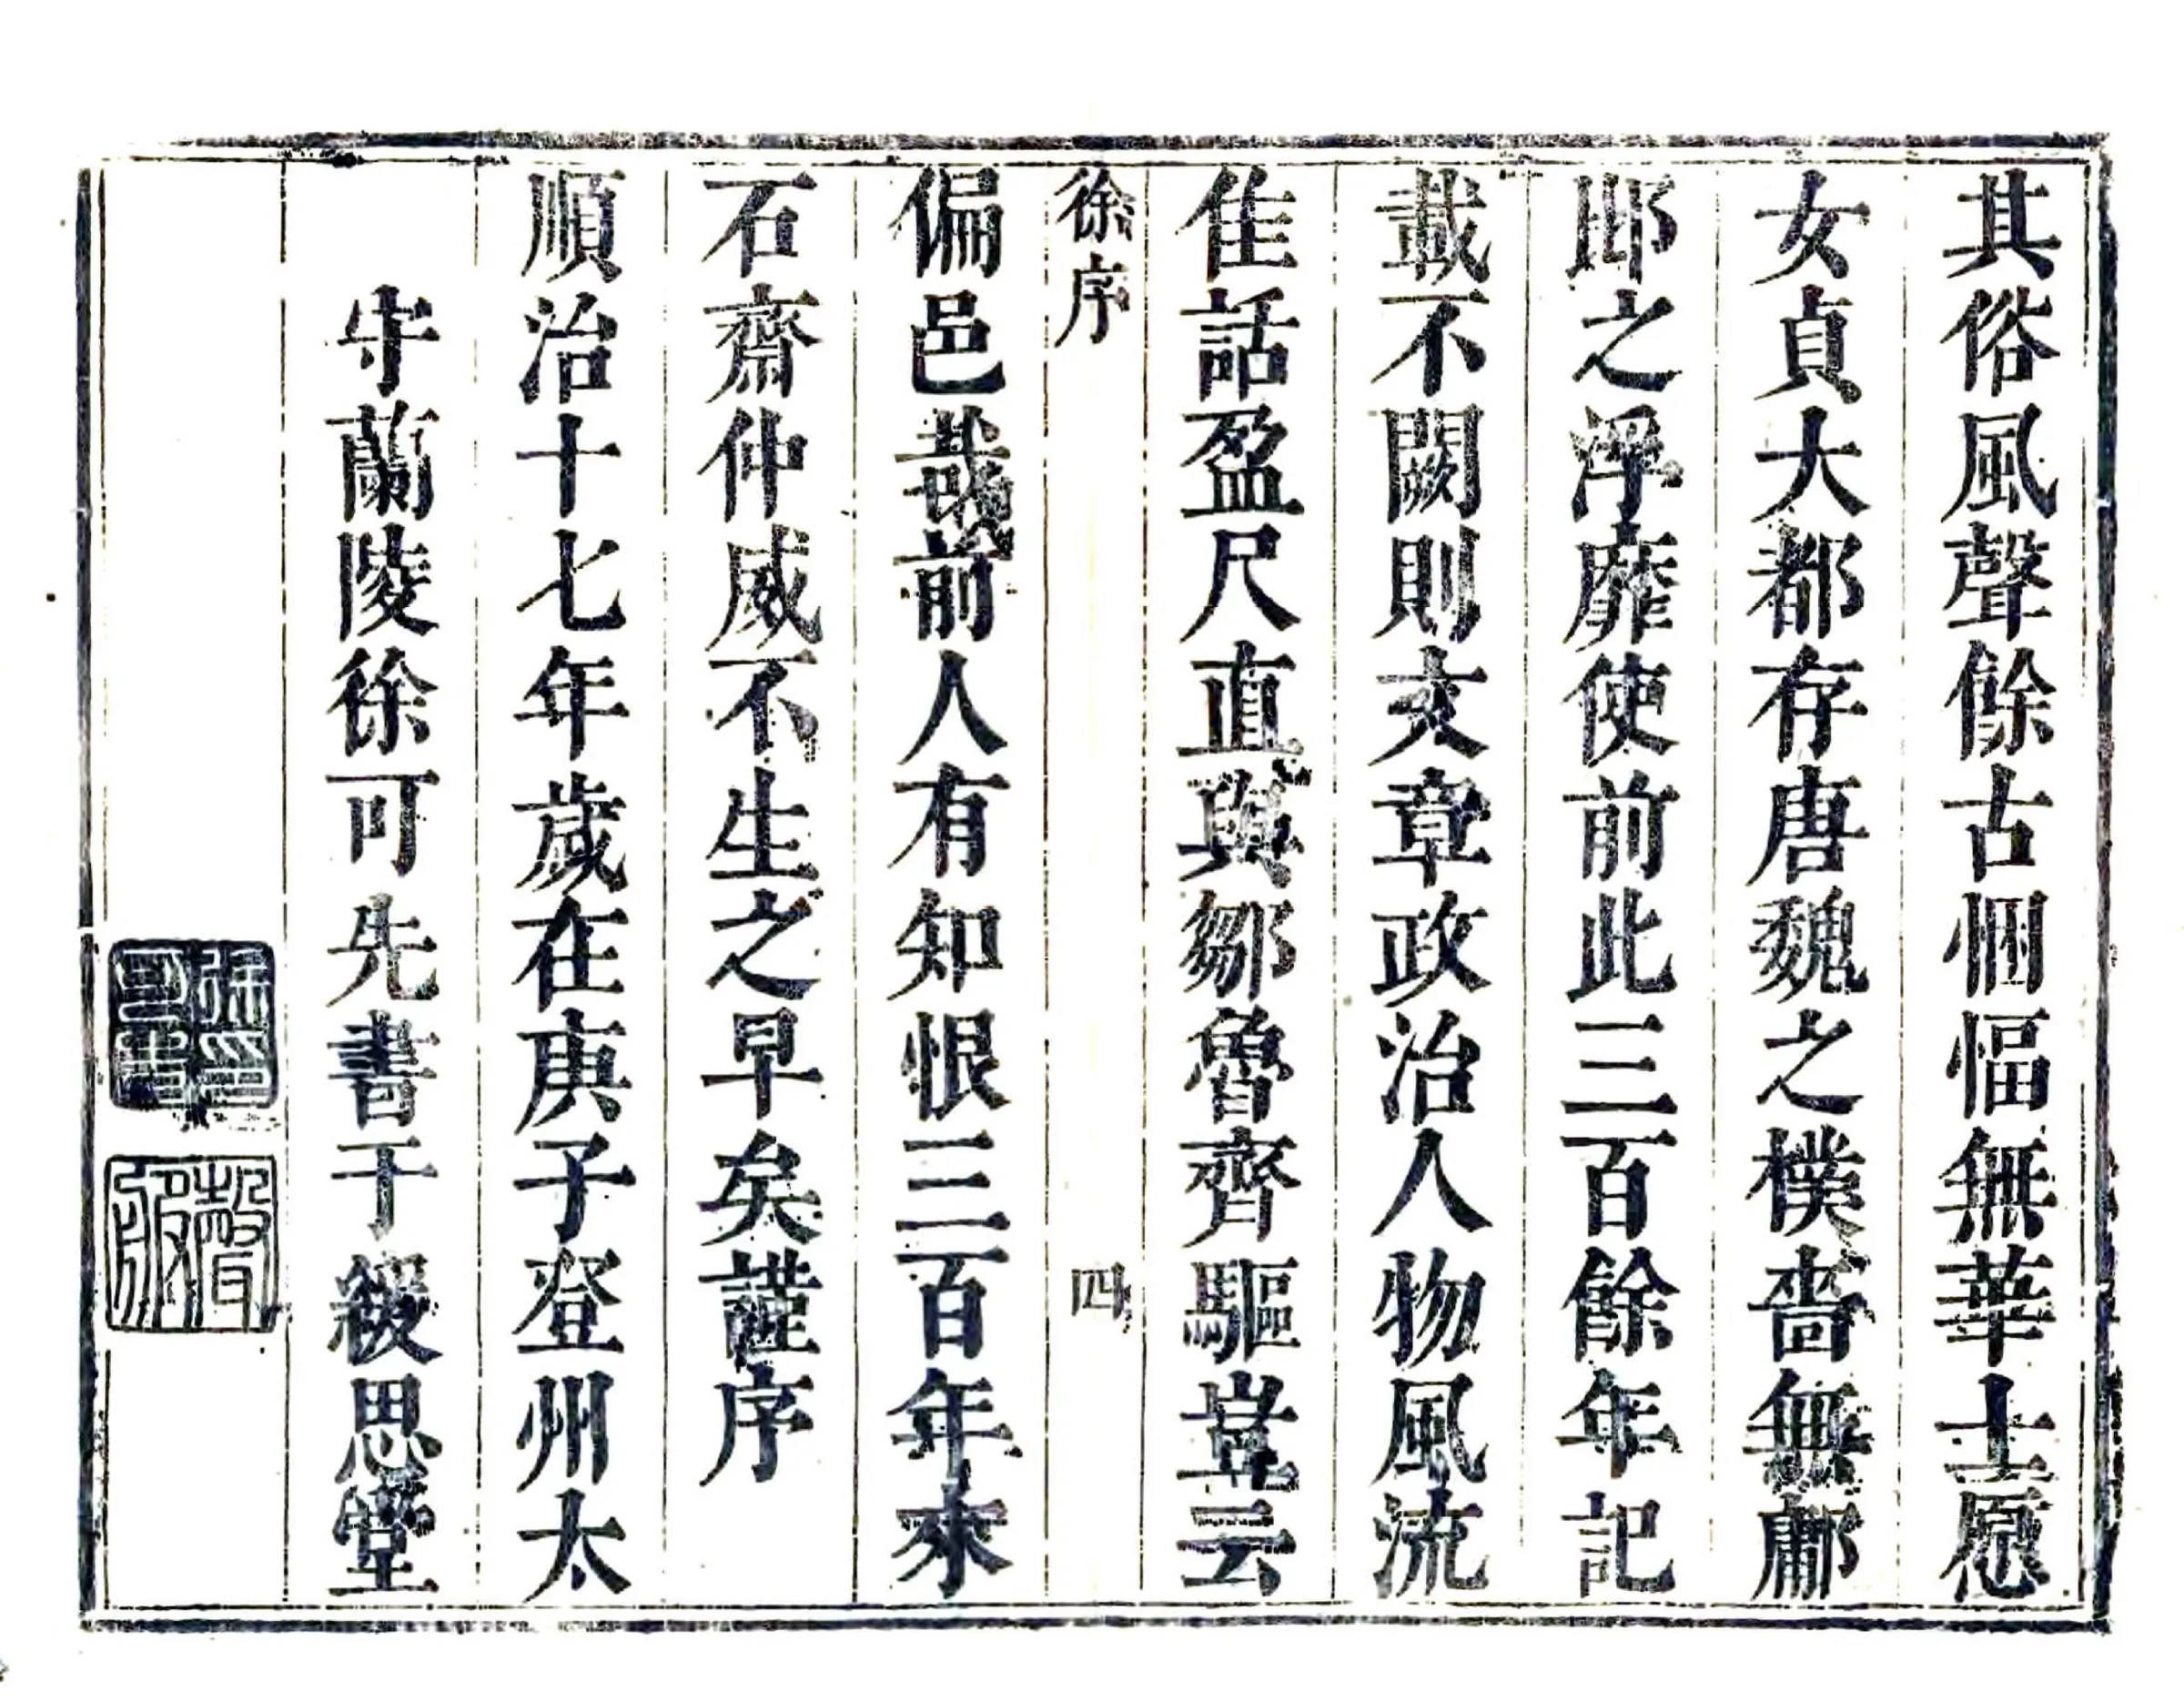 其俗風聲餘古悃愊無華士愿
女貞大都存唐魏之樸嗇無鄘
邶之浮靡使前此三百餘年記
載不闕則文章政治人物風流
佳話盈尺直與鄒魯齊驅豈云
徐序
四
偏邑哉前人有知恨三百年來
石齋仲威不生之早矣謹序
順治十七年歲在庚子登州太
守蘭陵徐可先書于緩思堂